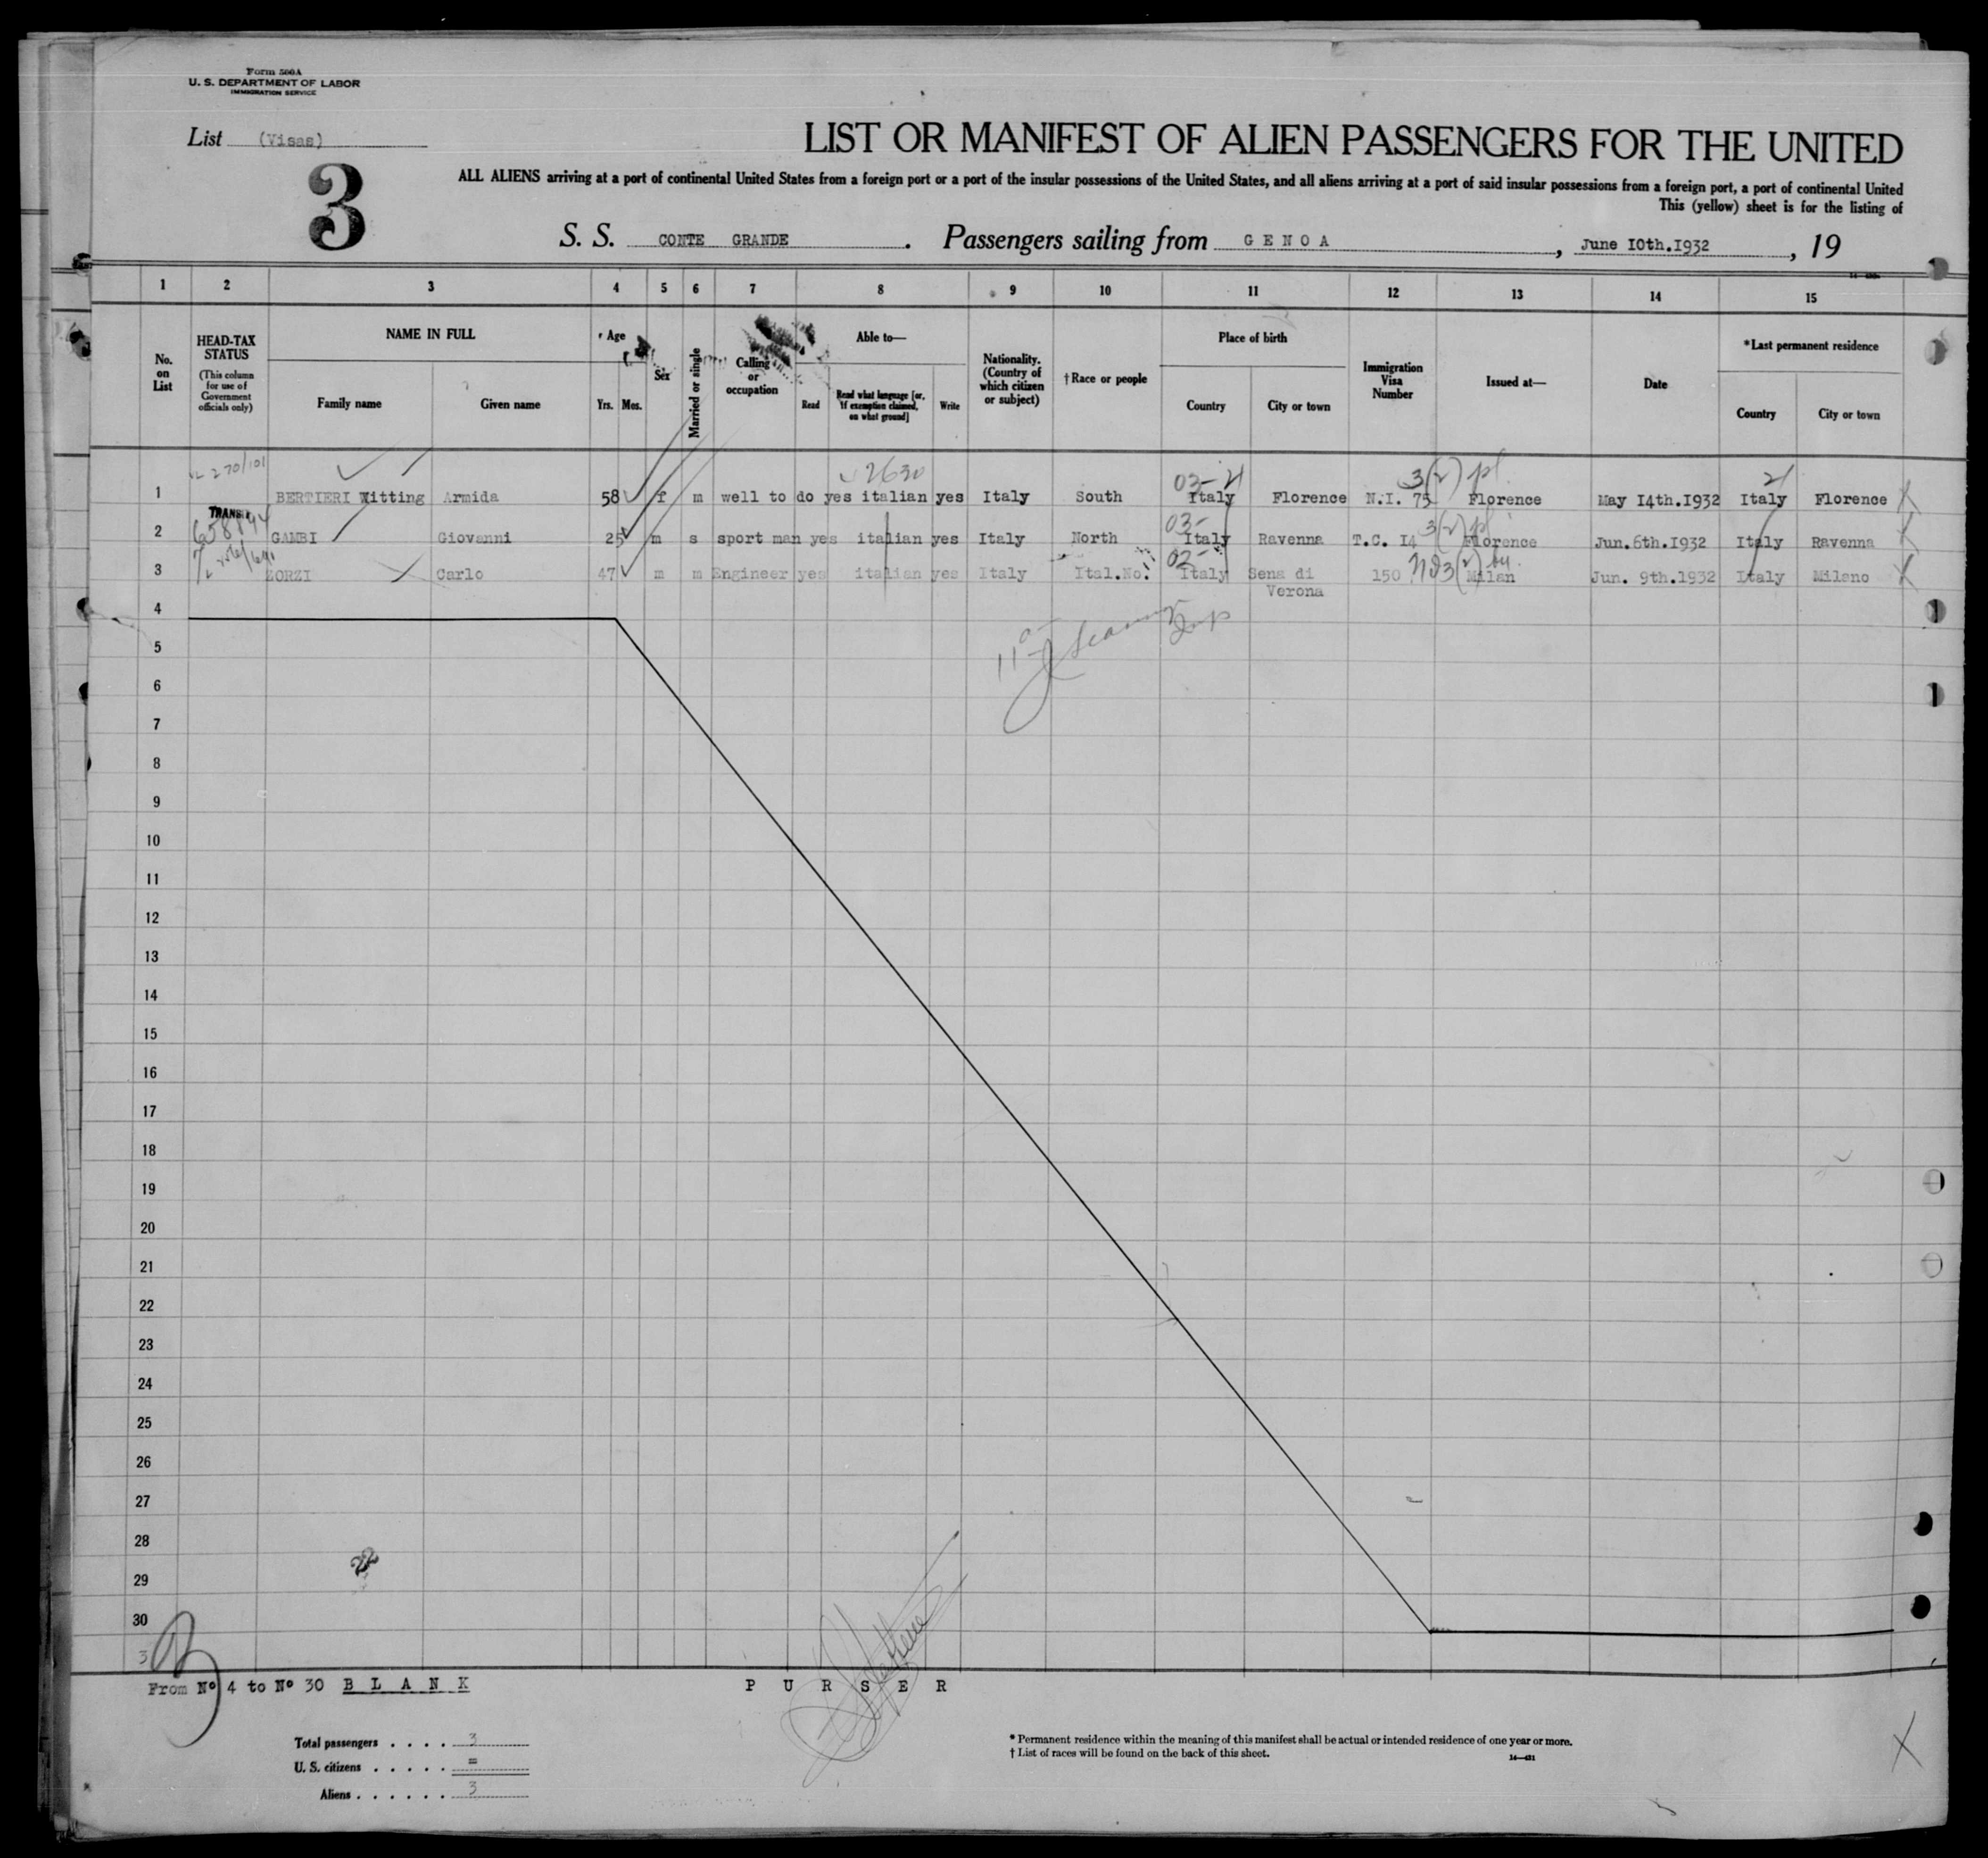 Form 500A
U. S. DEPARTMENT OF LABOR
IMMIGRATION SERVICE
List (Visas)
3
LIST OR MANIFEST OF ALIEN PASSENGERS FOR THE UNITED
ALL ALIENS arriving at a port of continental United States from a foreign port or a port of the insular possessions of the United States, and all aliens arriving at a port of said insular possessions from a foreign port, a port of continental United
This (yellow) sheet is for the listing of
S. S. CONTE GRANDE . Passengers sailing from G E N O A , June 10th.1932 , 19
1 2 3 4 5 6 7 8 9 10 11 12 13 14 15
No. on List
HEAD-TAX STATUS (This column for use of Government officials only)
NAME IN FULL
Family name Given name
Age
Yrs. Mos.
Sex
Married or single
Calling or occupation
Able to—
Read
Read what language [or, if exemption claimed, on what ground]
Write
Nationality. (Country of which citizen or subject)
†Race or people
Place of birth
Country City or town
Immigration Visa Number
Issued at—
Date
*Last permanent residence
Country City or town
270/101 2630 03- 3(2) pl
1 BERTIERI Witting Armida 58 f m well to do yes italian yes Italy South Italy Florence N.I. 75 Florence May 14th.1932 Italy Florence
TRANSIT 03- 3(2) pl
2 GAMBI Giovanni 25 m s sport man yes italian yes Italy North Italy Ravenna T.C. 14 Florence Jun.6th.1932 Italy Ravenna
03- 3(2)
3 ZORZI Carlo 47 m m Engineer yes italian yes Italy Ital.No. Italy Sena di Verona 150 Milan Jun. 9th.1932 Italy Milano
4
5
6
7
8
9
10
11
12
13
14
15
16
17
18
19
20
21
22
23
24
25
26
27
28
29
30
From Nº 4 to Nº 30 B L A N K
P U R S E R
Total passengers . . . . 3
U. S. citizens . . . . . =
Aliens . . . . . . 3
* Permanent residence within the meaning of this manifest shall be actual or intended residence of one year or more.
† List of races will be found on the back of this sheet.